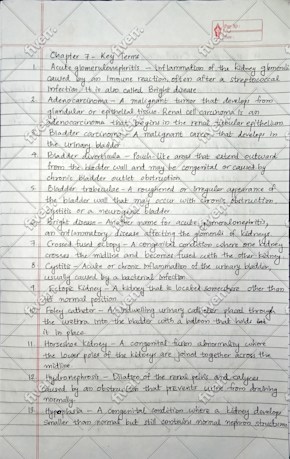 Chapter 7 - Key Terms
1. Acute glomerulonephritis - Inflammation of the kidney glomeruli
caused by an immune reaction, often after a streptococcal
infection. It is also called Bright disease
2. Adenocarcinoma - A malignant tumor that develops from
glandular or epithelial tissue. Renal cell carcinoma is an
adenocarcinoma that begins in the renal tubular epithelium
3. Bladder carcinoma - A malignant cancer that develops in
the urinary bladder
4. Bladder diverticula - Pouch-like areas that extend outward
from the bladder wall and may be congenital or caused by
chronic bladder outlet obstruction
5. Bladder trabeculae - A roughened or irregular appearance of
the bladder wall that may occur with chronic obstruction,
cystitis or a neurogenic bladder
6. Bright disease - Another name for acute glomerulonephritis,
an inflammatory disease affecting the glomeruli of kidneys
7. Crossed fused ectopy - A congenital condition where one kidney
crosses the midline and becomes fused with the other kidney
8. Cystitis - Acute or chronic inflammation of the urinary bladder,
usually caused by a bacterial infection
9. Ectopic kidney - A kidney that is located somewhere other than
its normal position
10. Foley catheter - An indwelling urinary catheter placed through
the urethra into the bladder with a balloon that holds it
it in place
11. Horseshoe kidney - A congenital fusion abnormality where
the lower poles of the kidneys are joined together across the
midline
12. Hydronephrosis - Dilation of the renal pelvis and calyces
caused by an obstruction that prevents urine from draining
normally
13. Hypoplasia - A congenital condition where a kidney develops
smaller than normal but still contains normal nephron structures